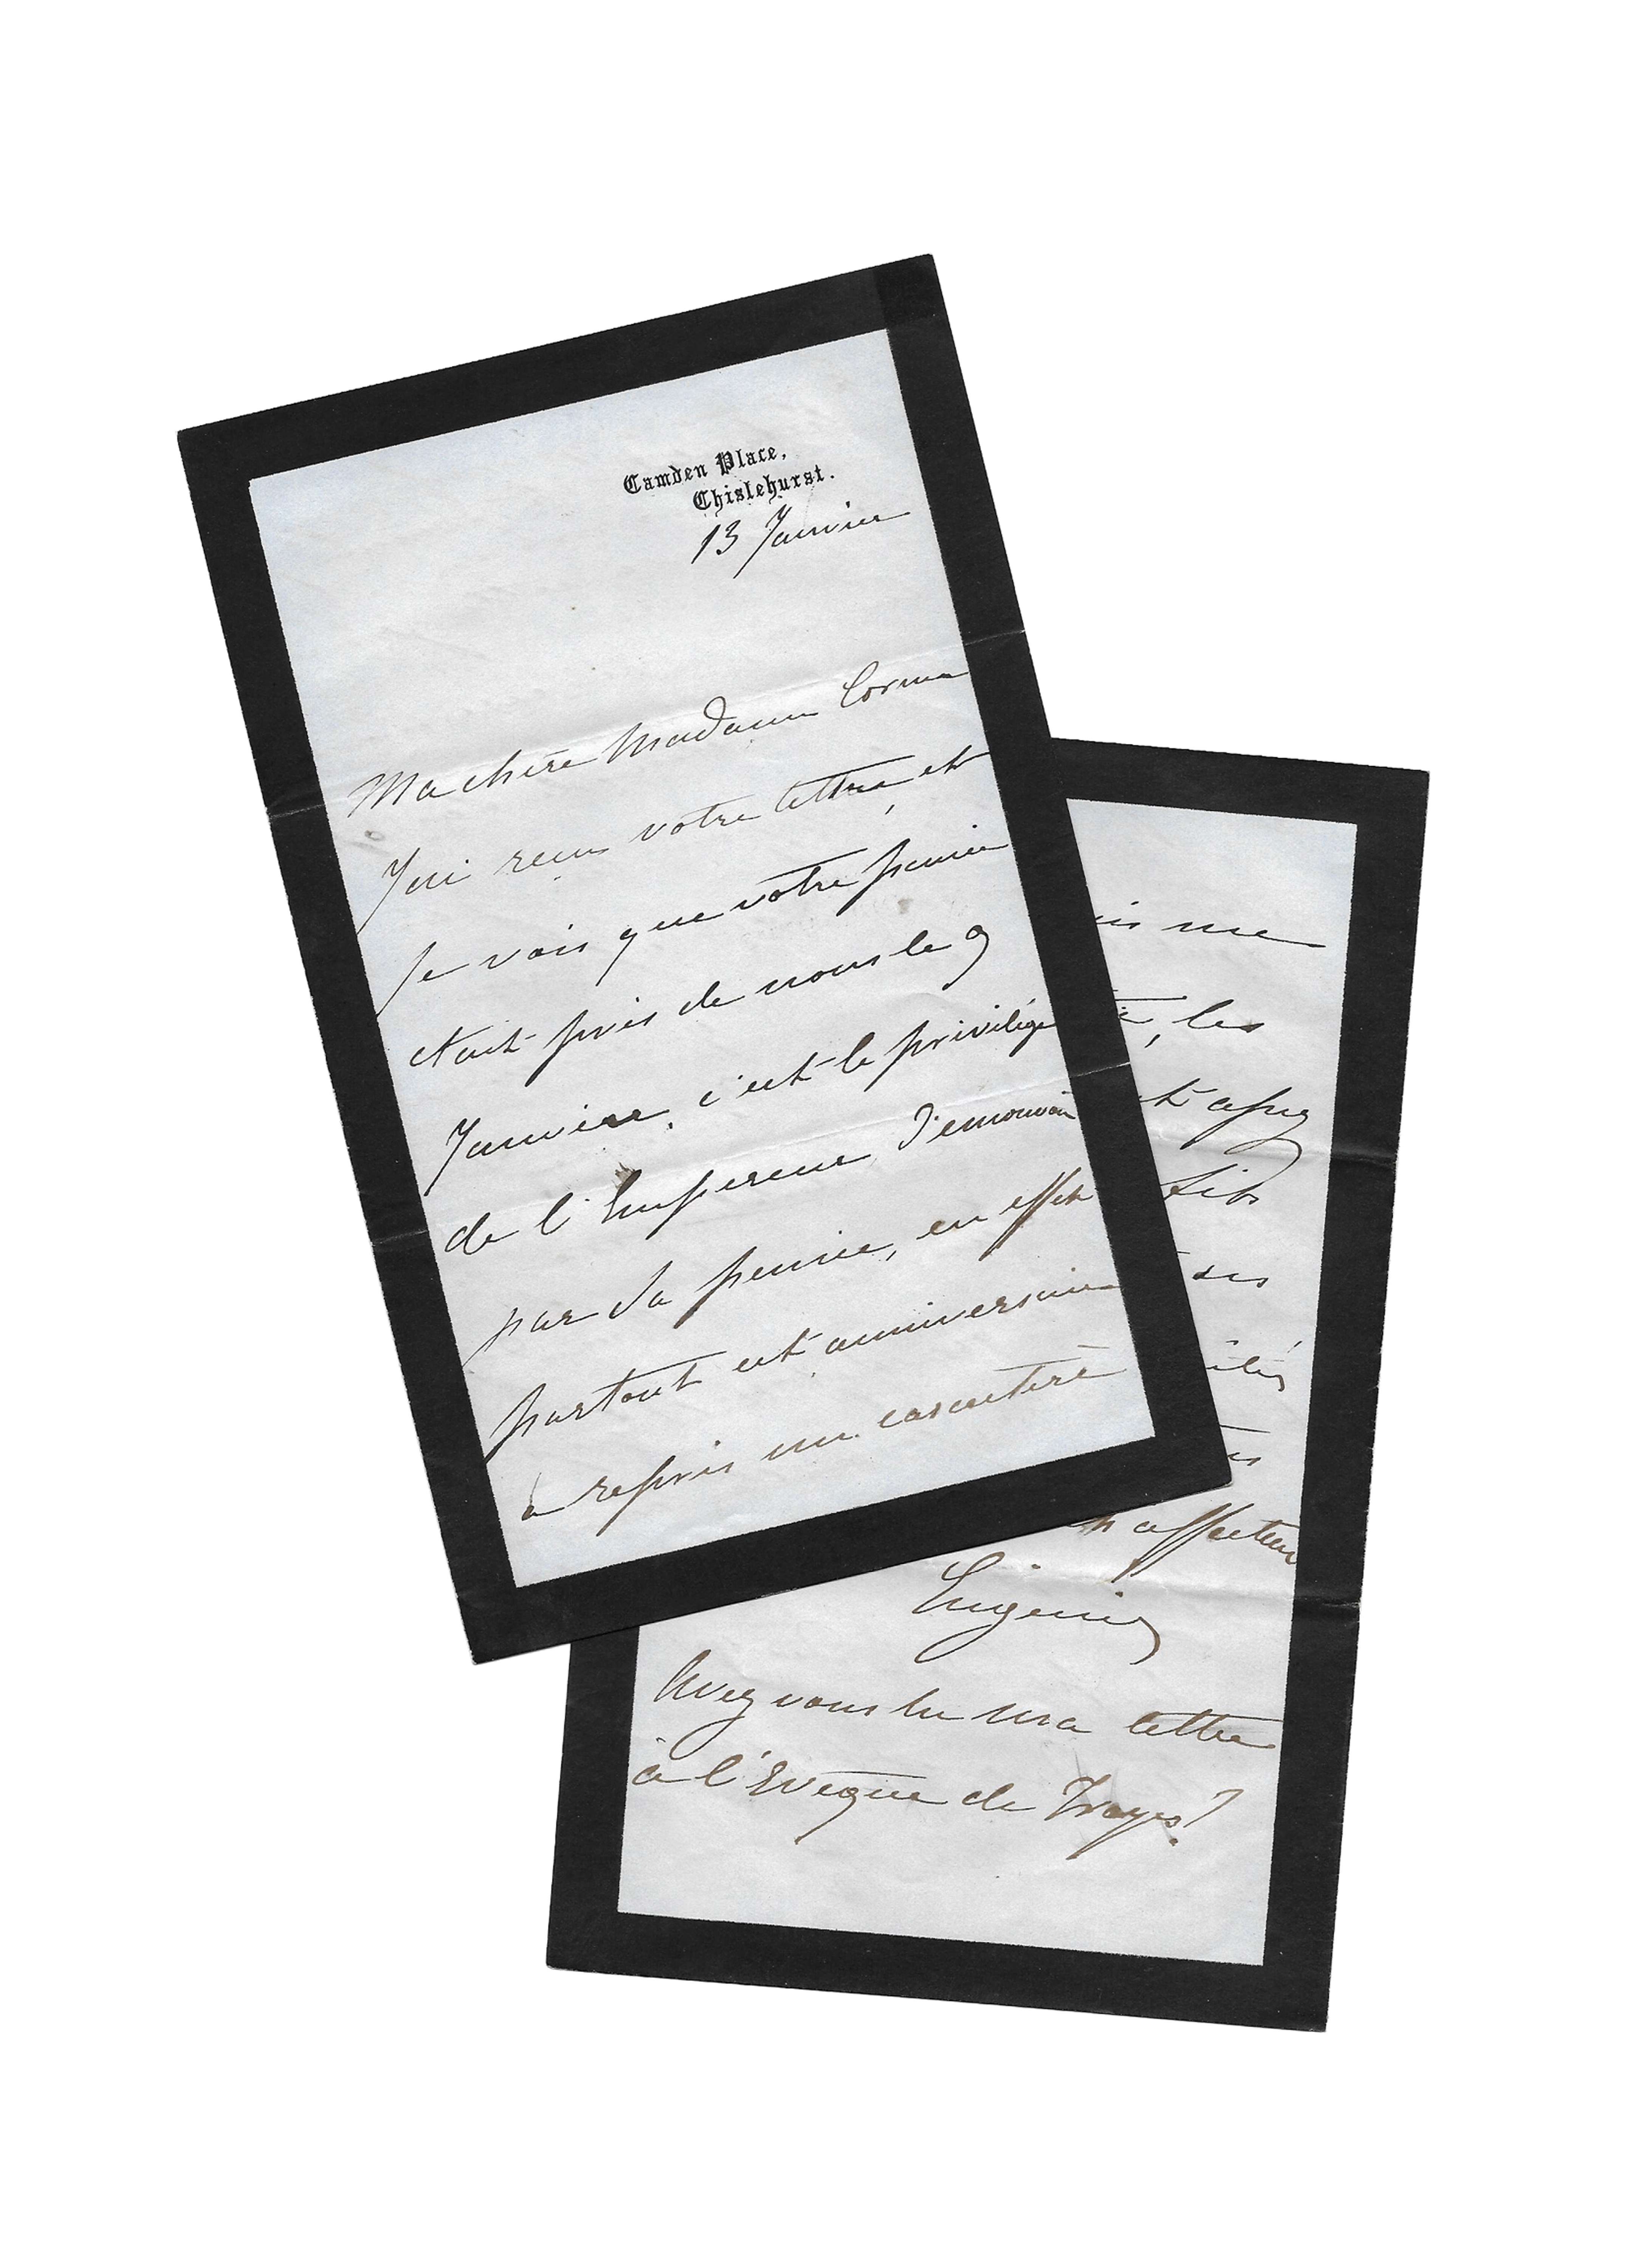 Camden Place,
Chislehurst.
13 Janvier
Ma chère Madame Cornu
J'ai reçu votre lettre, et
je vois que votre pensée
etait près de nous le 9
Janvier, c'est le privilége
de l'Empereur d'emouvoir
par sa pensée, en effet
partout cet anniversaire
a repris un caractère
me
les
affectueux
Eugénie
Avez vous lu ma lettre
à l'Eveque de Troyes?